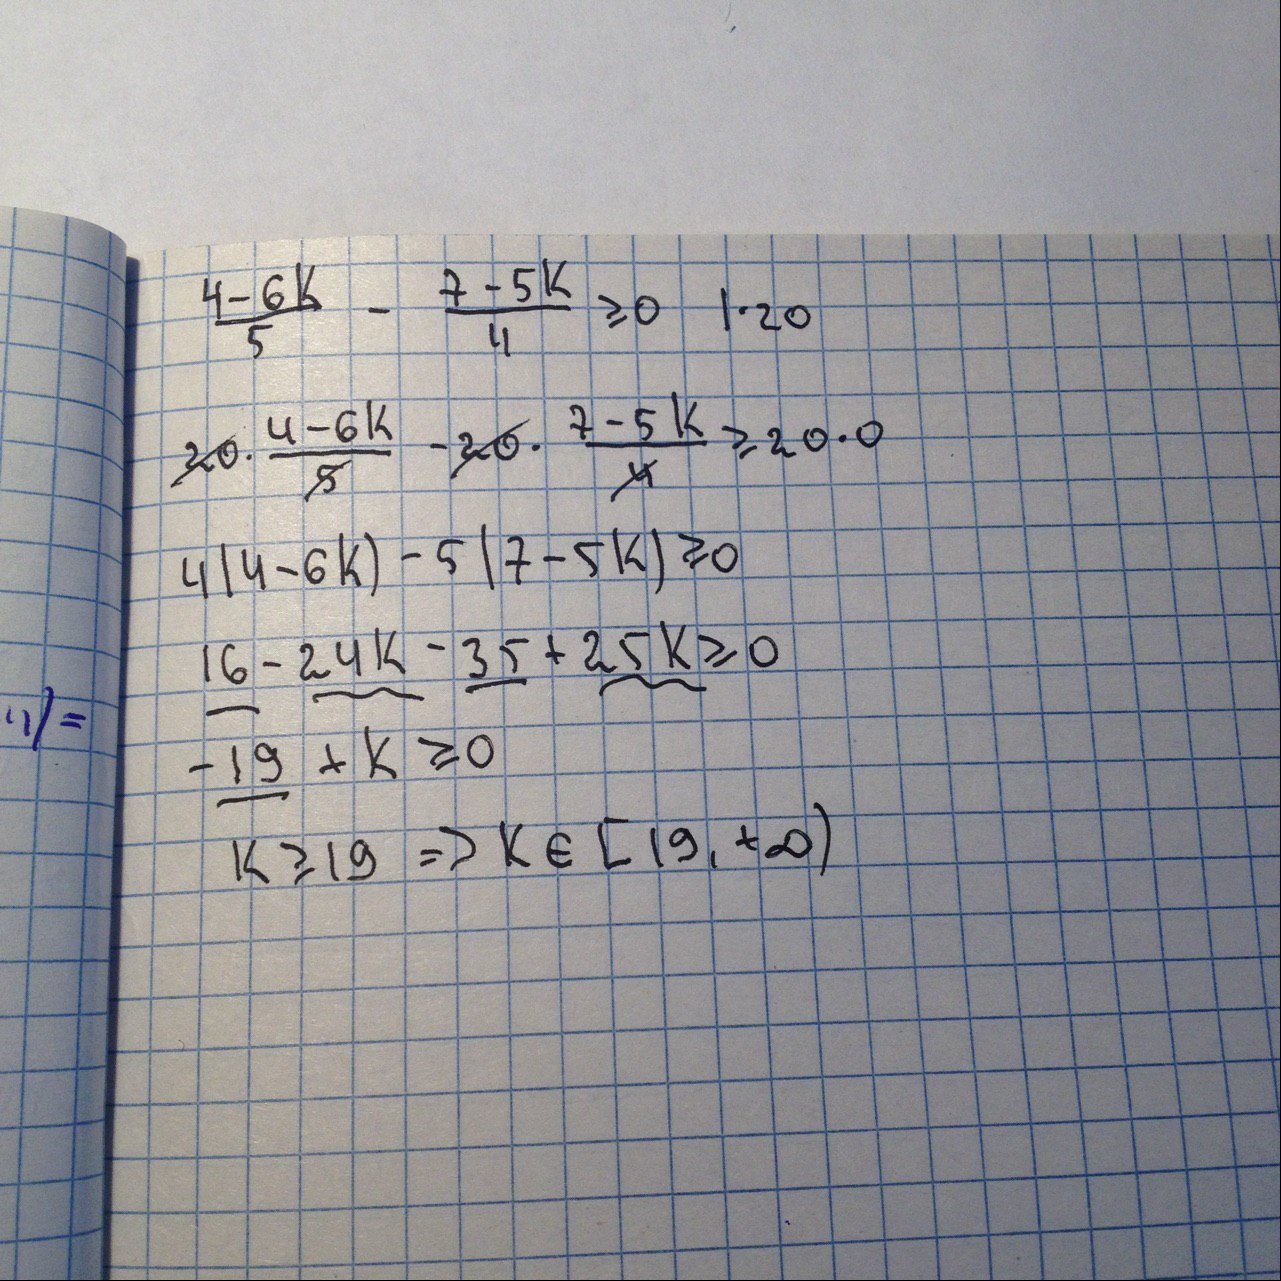 (4-6k)/5 - (7-5k)/4 ≥0 |·20
20· (4-6k)/5 -20· (7-5k)/4 ≥20·0
4(4-6k)-5(7-5k)≥0
16-24k-35+25k≥0
")=
-19 +k ≥0
k≥19 => k∈[19,+∞)